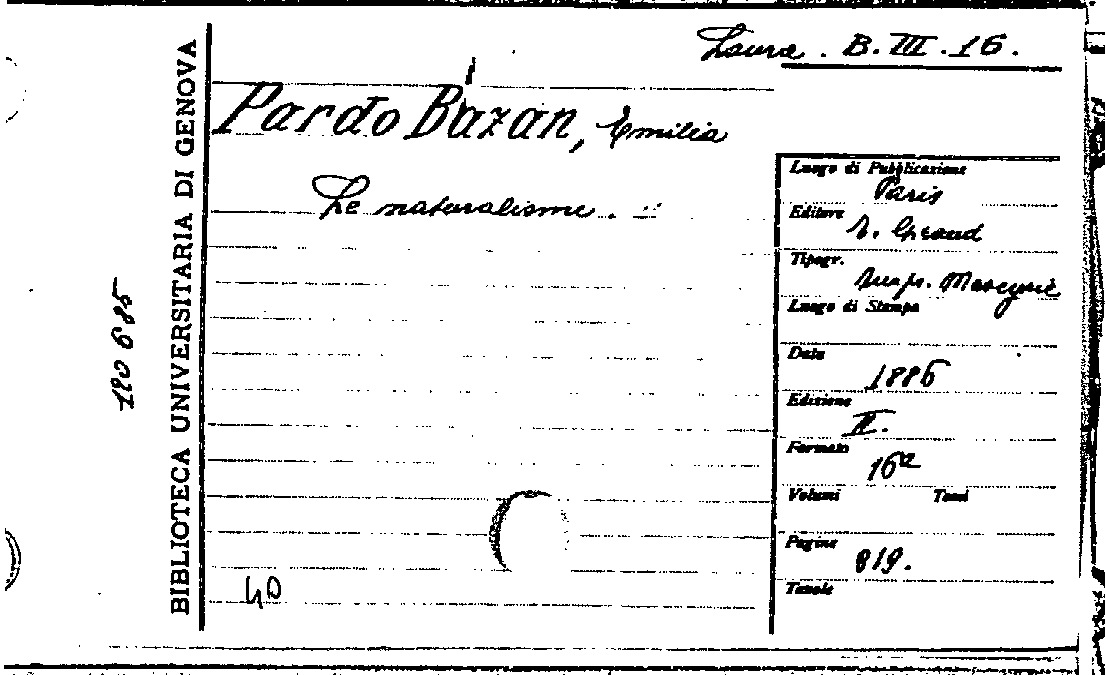 Laura . B. III . 16 .
Pardo Bázan, Emilia
Le naturalisme .
BIBLIOTECA UNIVERSITARIA DI GENOVA
120685
Luogo di Pubblicazione
Paris
Editore
E. Giraud
Tipogr.
Impr.
Luogo di Stampa
Data
1886
Edizione
II.
Formato
16º
Volumi Tomi
Pagine
319.
Tavole
40